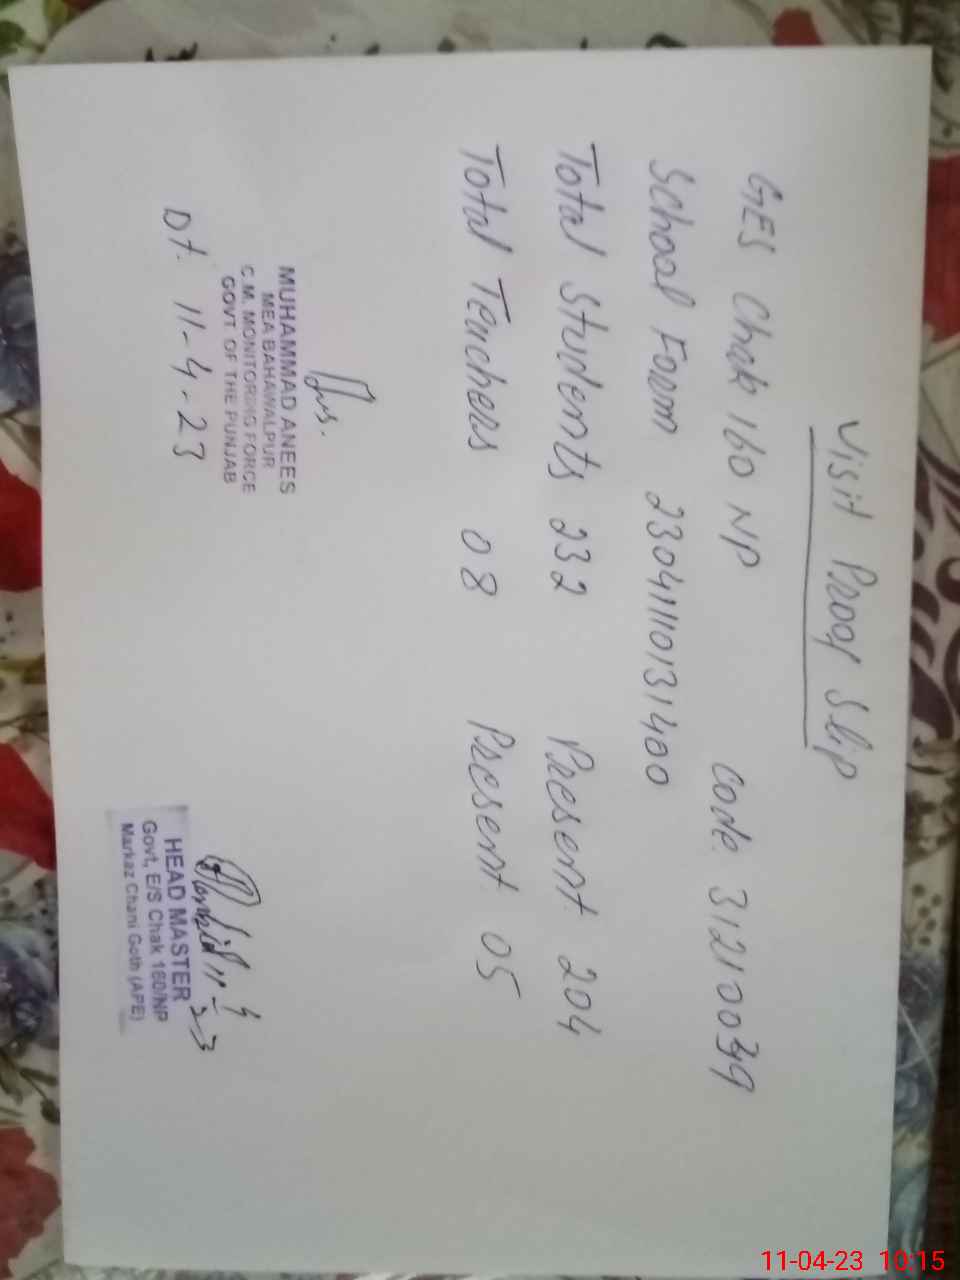 Visit Proof Slip
GES Chak 160 NP Code. 31210039
School Form 23041110131400
Total Students 232 Present 204
Total Teachers 08 Present 05
MUHAMMAD ANEES
MEA BAHAWALPUR
C.M. MONITORING FORCE
GOVT OF THE PUNJAB
Dt. 11-4-23
11-4-23
HEAD MASTER
Govt, E/S Chak 160/NP
Markaz Chani Goth (APE)
11-04-23 10:15